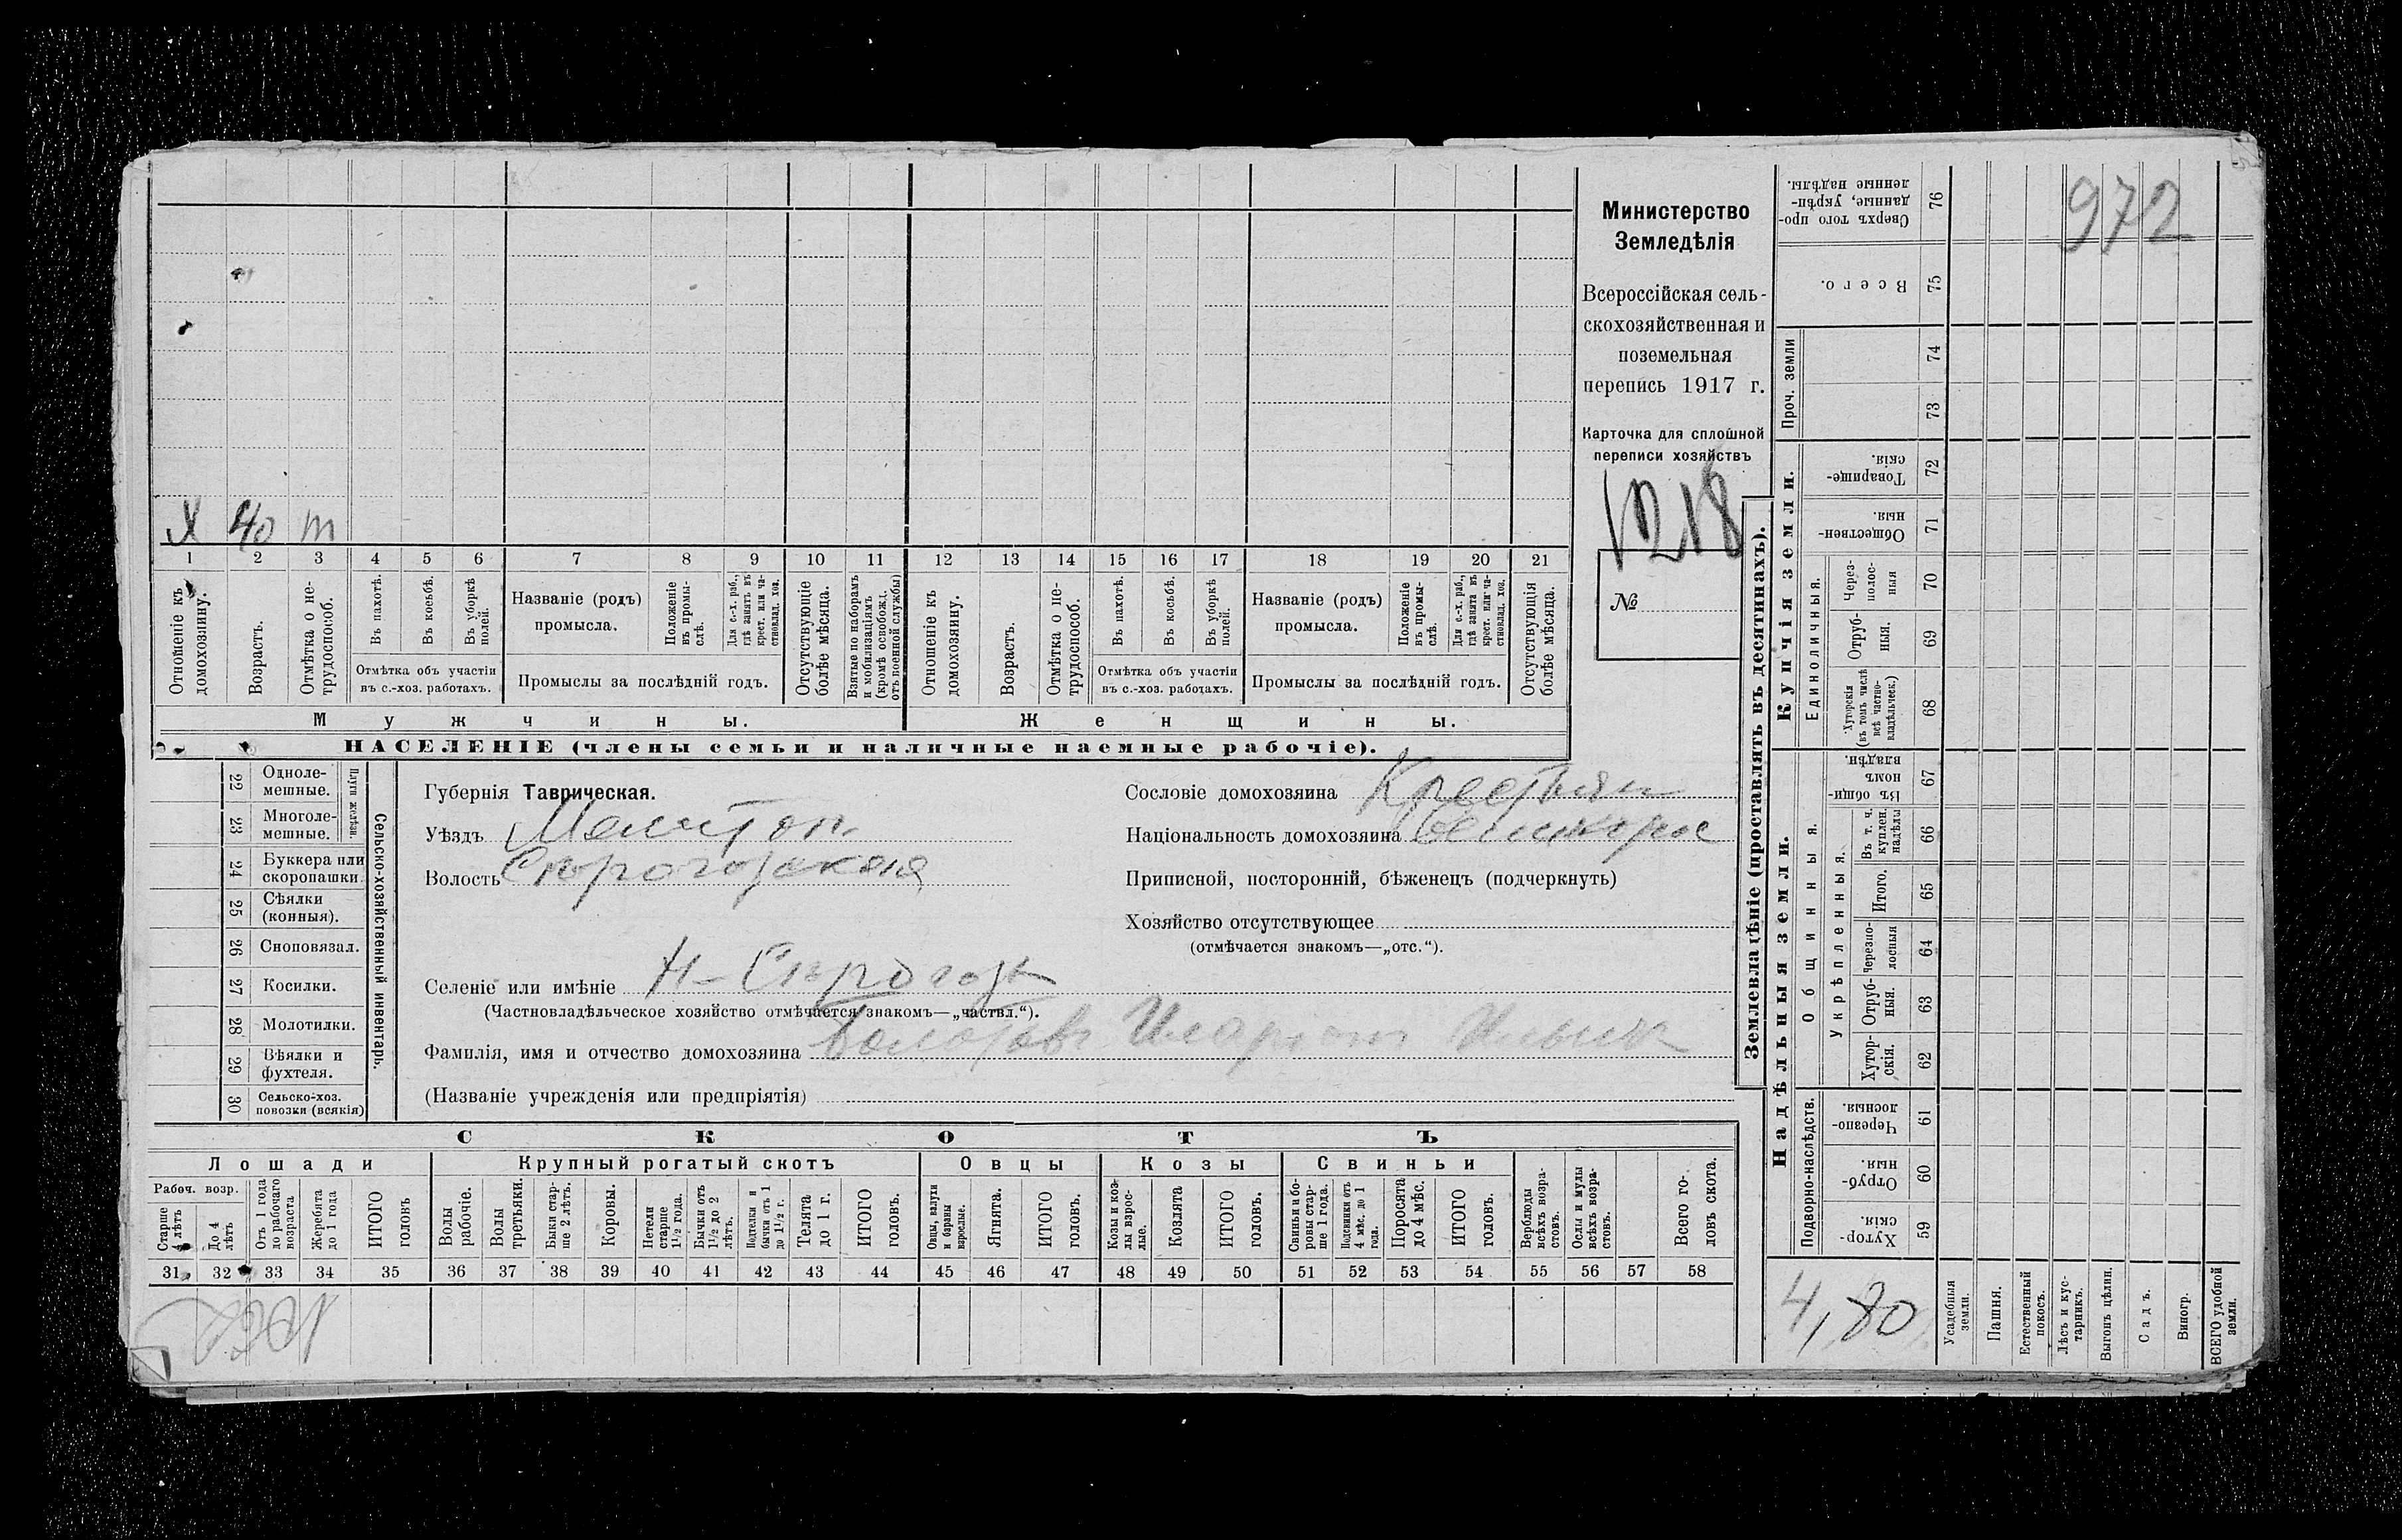 972
Министерство
Земледѣлія
Всероссійская сель-
скохозяйственная и
поземельная
перепись 1917 г.
Карточка для сплошной
переписи хозяйствъ
1218
№
Х 40 т
1 2 3 4 5 6 7 8 9 10 11 12 13 14 15 16 17 18 19 20 21
Отношеніе къ домохозяину.
Возрастъ.
Отмѣтка о не-трудоспособ.
Въ пахотѣ.
Въ косьбѣ.
Въ уборкѣ полей.
Отмѣтка объ участіи
въ с.-хоз. работахъ.
Названіе (родъ)
промысла.
Положеніе въ промы-слѣ.
Для с.-х. раб., гдѣ занятъ въ крест. или ча-стновлад. хоз.
Промыслы за послѣдній годъ.
Отсутствующіе болѣе мѣсяца.
Взятые по наборамъ и мобилизаціямъ (кромѣ освобожд. отъ военной службы)
Отношеніе къ домохозяину.
Возрастъ.
Отмѣтка о не-трудоспособ.
Въ пахотѣ.
Въ косьбѣ.
Въ уборкѣ полей.
Отмѣтка объ участіи
въ с.-хоз. работахъ.
Названіе (родъ)
промысла.
Положеніе въ промы-слѣ.
Для с.-х. раб., гдѣ занята въ крест. или ча-стновлад. хоз.
Промыслы за послѣдній годъ.
Отсутствующія болѣе мѣсяца.
Мужчины.
Женщины.
НАСЕЛЕНІЕ (члены семьи и наличные наемные рабочіе).
Сельско-хозяйственный инвентарь.
22 Одноле-
мешные.
23 Многоле-
мешные.
24 Буккера или
скоропашки
25 Сѣялки
(конныя).
26 Сноповязал.
27 Косилки.
28 Молотилки.
29 Вѣялки и
фухтеля.
30 Сельско-хоз.
повозки (всякія)
Губернія Таврическая.
Уѣздъ Мелитоп.
Волость
Селеніе или имѣніе
(Частновладѣльческое хозяйство отмѣчается знакомъ—„частвл.“).
Фамилія, имя и отчество домохозяина
(Названіе учрежденія или предпріятія)
Сословіе домохозяина Крестьян
Національность домохозяина великорос
Приписной, посторонній, бѣженецъ (подчеркнуть)
Хозяйство отсутствующее
(отмѣчается знакомъ—„отс.“).
СКОТЪ
Лошади
Рабоч. возр.
Старше 4 лѣтъ
До 4 лѣтъ
Отъ 1 года до рабочаго возраста
Жеребята до 1 года
ИТОГО головъ
Крупный рогатый скотъ
Волы рабочіе.
Волы третьяки.
Быки стар-ше 2 лѣтъ.
Коровы.
Нетели старше 1½ года.
Бычки отъ 1½ до 2 лѣтъ.
Подтелки и бычки отъ 1 до 1½ г.
Телята до 1 г.
ИТОГО головъ.
Овцы
Овцы, валухи и бараны взрослые.
Ягнята.
ИТОГО головъ.
Козы
Козы и коз-лы взрос-лые.
Козлята
ИТОГО головъ.
Свиньи
Свиньи и бо-ровы стар-ше 1 года.
Подсвинки отъ 4 мѣс. до 1 года.
Поросята до 4 мѣс.
ИТОГО головъ.
Верблюды всѣхъ возра-стовъ.
Ослы и мулы всѣхъ возра-стовъ.
Всего го-ловъ скота.
31 32 33 34 35 36 37 38 39 40 41 42 43 44 45 46 47 48 49 50 51 52 53 54 55 56 57 58
Землевладѣніе (проставлять въ десятинахъ).
Купчія земли.
Сверхъ того про-данные, укрѣп-ленные надѣлы. 76
Всего. 75
Проч. земли 74 73
Товарище-скія. 72
Обществен-ныя. 71
Единоличныя.
Через-полос-ныя 70
Отруб-ныя. 69
Хуторскія (въ томъ числѣ всѣ частно-владѣльческ.) 68
Надѣльныя земли.
Общинныя.
Въ общи-номъ владѣн. 67
Укрѣпленныя.
Въ т. ч. куплен. надѣлы 66
Итого. 65
Черезпо-лосныя 64
Отруб-ныя. 63
Хутор-скія. 62
Подворно-наслѣдств.
Черезпо-лосныя. 61
Отруб-ныя. 60
Хутор-скія 59
4,80
Усадебныя земли.
Пашня.
Естественный покосъ.
Лѣсъ и кус-тарникъ.
Выгонъ цѣлин.
Садъ.
Виногр.
ВСЕГО удобной земли.